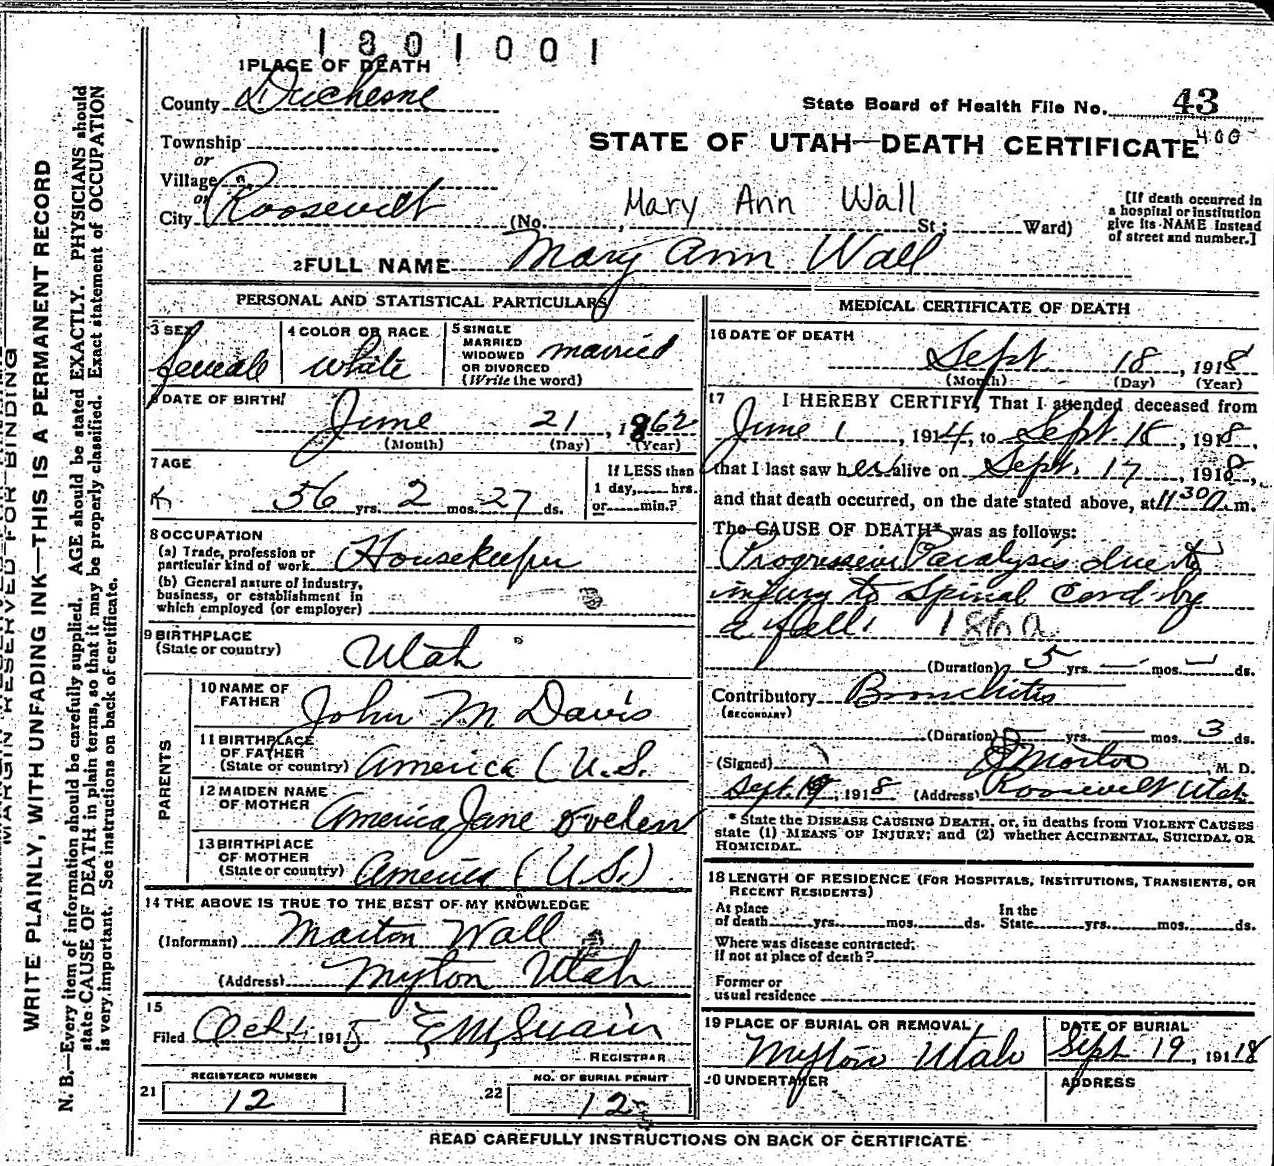 1801001
1 PLACE OF DEATH
County Duchesne
State Board of Health File No. 43
400
Township
or
Village
or
City Roosevelt
STATE OF UTAH—DEATH CERTIFICATE
Mary Ann Wall
(No. , St; Ward)
[If death occurred in
a hospital or institution
give its NAME instead
of street and number.]
2 FULL NAME Mary Ann Wall
PERSONAL AND STATISTICAL PARTICULARS
3 SEX
female
4 COLOR OR RACE
White
5 SINGLE
MARRIED
WIDOWED
OR DIVORCED
(Write the word)
married
6 DATE OF BIRTH
June 21, 1862
(Month) (Day) (Year)
7 AGE
56 yrs. 2 mos. 27 ds.
If LESS than
1 day, hrs.
or min.?
8 OCCUPATION
(a) Trade, profession or
particular kind of work Housekeeper
(b) General nature of industry,
business, or establishment in
which employed (or employer)
9 BIRTHPLACE
(State or country) Utah
PARENTS
10 NAME OF
FATHER John M Davis
11 BIRTHPLACE
OF FATHER
(State or country) America (U.S.
12 MAIDEN NAME
OF MOTHER America Jane
13 BIRTHPLACE
OF MOTHER
(State or country) America (U.S.)
14 THE ABOVE IS TRUE TO THE BEST OF MY KNOWLEDGE
(Informant) Marton Wall
(Address) Myton Utah
15
Filed Oct 1, 1918
REGISTRAR
REGISTERED NUMBER
21 12
NO. OF BURIAL PERMIT
22 12
MEDICAL CERTIFICATE OF DEATH
16 DATE OF DEATH
Sept. 18, 1918
(Month) (Day) (Year)
17 I HEREBY CERTIFY, That I attended deceased from
June 1, 1914, to Sept. 18, 1918,
that I last saw her alive on Sept. 17, 1918,
and that death occurred, on the date stated above, at 11 30 m.
The CAUSE OF DEATH* was as follows:
Progressive Paralysis due to
injury to Spinal Cord by
a fall.
(Duration) 5 yrs. — mos. — ds.
Contributory Bronchitis
(SECONDARY)
(Duration) — yrs. — mos. 3 ds.
(Signed) Morton, M. D.
Sept. 19, 1918 (Address) Roosevelt Utah
* State the DISEASE CAUSING DEATH, or, in deaths from VIOLENT CAUSES
state (1) MEANS OF INJURY; and (2) whether ACCIDENTAL, SUICIDAL OR
HOMICIDAL.
18 LENGTH OF RESIDENCE (FOR HOSPITALS, INSTITUTIONS, TRANSIENTS, OR
RECENT RESIDENTS)
At place
of death yrs. mos. ds.
In the
State yrs. mos. ds.
Where was disease contracted;
if not at place of death?
Former or
usual residence
19 PLACE OF BURIAL OR REMOVAL
Myton Utah
DATE OF BURIAL
Sept 19, 1918
20 UNDERTAKER
ADDRESS
READ CAREFULLY INSTRUCTIONS ON BACK OF CERTIFICATE
MARGIN RESERVED FOR BINDING
WRITE PLAINLY, WITH UNFADING INK—THIS IS A PERMANENT RECORD
N. B.—Every item of information should be carefully supplied. AGE should be stated EXACTLY. PHYSICIANS should
state CAUSE OF DEATH in plain terms, so that it may be properly classified. Exact statement of OCCUPATION
is very important. See instructions on back of certificate.